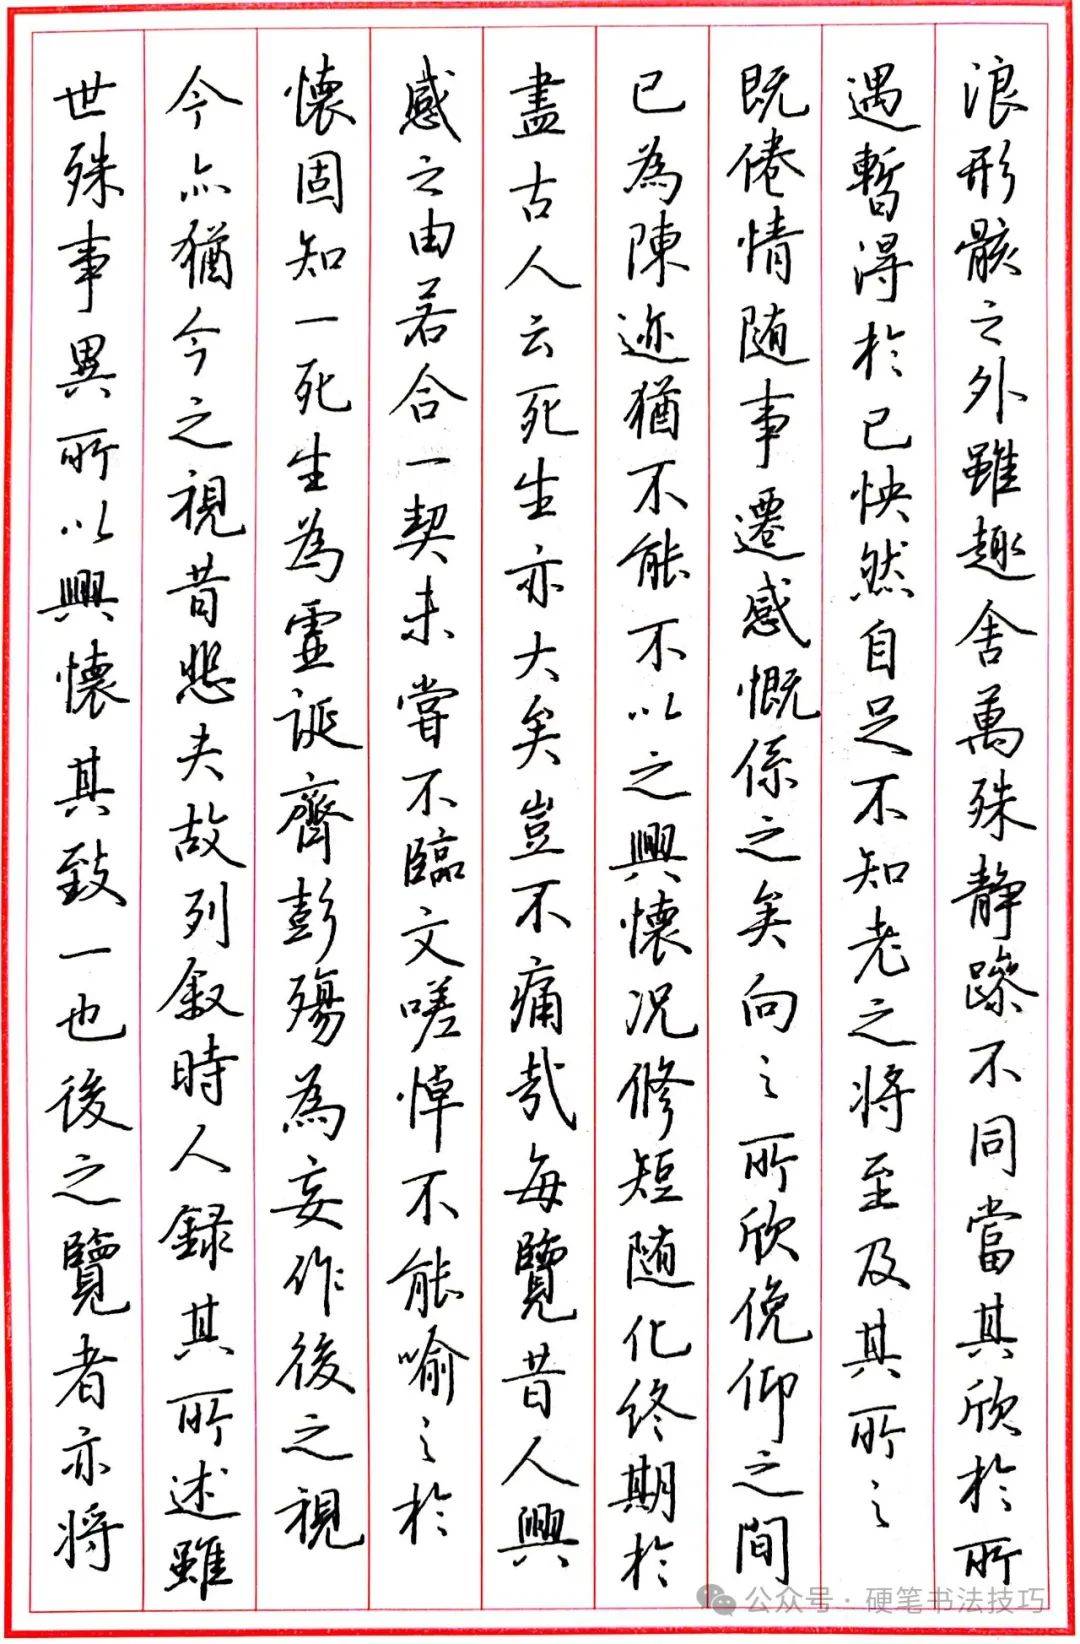 浪形骸之外雖趣舍萬殊静躁不同當其欣於所
遇暫得於己怏然自足不知老之將至及其所之
既倦情随事遷感慨係之矣向之所欣俛仰之間
已為陳迹猶不能不以之興懷況修短随化終期於
盡古人云死生亦大矣豈不痛哉每覽昔人興
感之由若合一契未嘗不臨文嗟悼不能喻之於
懷固知一死生為虛誕齊彭殤為妄作後之視
今亦猶今之視昔悲夫故列叙時人録其所述雖
世殊事異所以興懷其致一也後之覽者亦將
公众号·硬笔书法技巧